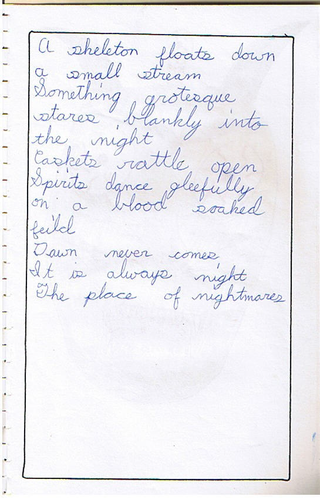 A skeleton floats down
a small stream
Something grotesque
stares blankly into
the night
Caskets rattle open
Spirits dance gleefully
on a blood soaked
feild
Dawn never comes
It is always night
The place of nightmares